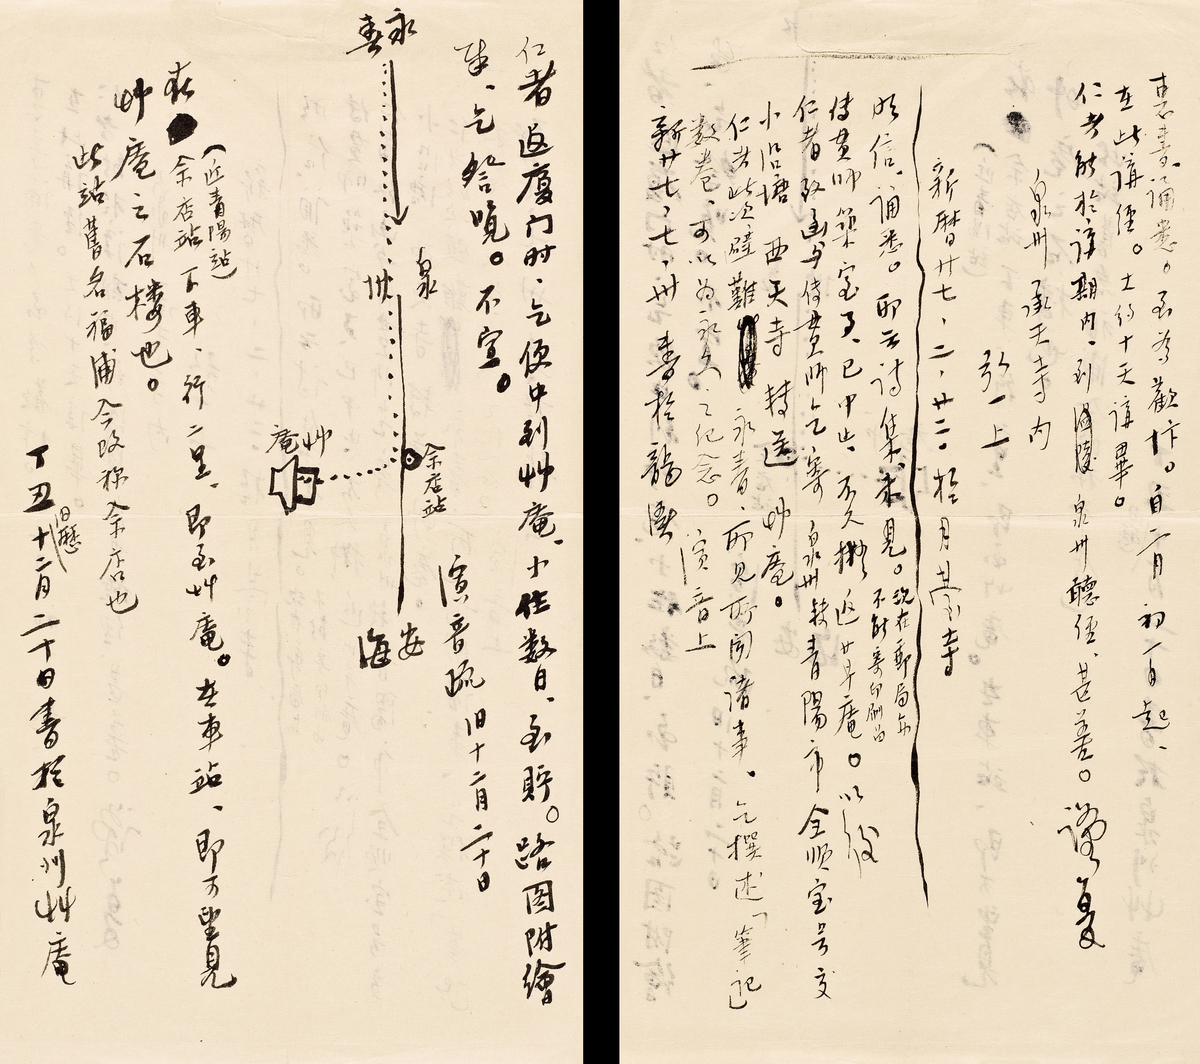 惠書誦悉。至為歡忭。自二月初一日起、
在此講經。大約十天講畢。
仁者能於講期內、到泉州聽經、甚善。謹復
泉州承天寺內
弘一上
新曆廿七、二、廿二於月臺寺
明信、誦悉。郵云詩集、未見。現在郵局亦
不能寄印刷品
傳貫師築室事、已中止、不久擬返草庵。以後
仁者致函與傳貫師乞寄泉州轉青陽市全順宝号交
小沿塘西天寺轉送艸庵。
仁者此次避難永春、所見所聞諸事。乞撰述「筆記
数卷、可以為永久之紀念。演音上
新廿七、七、卅書於龍溪
仁者返廈門时、乞便中到艸庵、小住数日、至盼。路图附繪
奉、乞詧覽。不宣。
演音疏旧十二月二十日
永春
泉州
余店站
艸庵
安海
在余店站下車、行二里、即至艸庵。在車站、即可望見
(近青陽站)
艸庵之石楼也。
此站舊名福浦今改称余店也
丁丑旧曆十二月二十日書於泉州艸庵